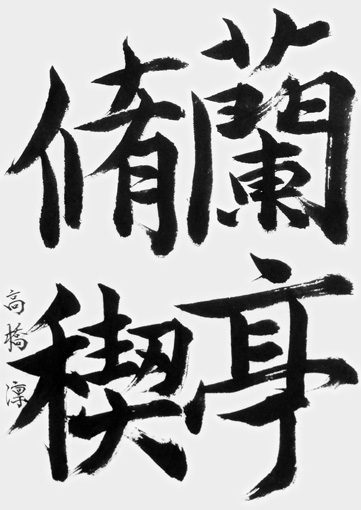 蘭亭
脩稧
高橋凛